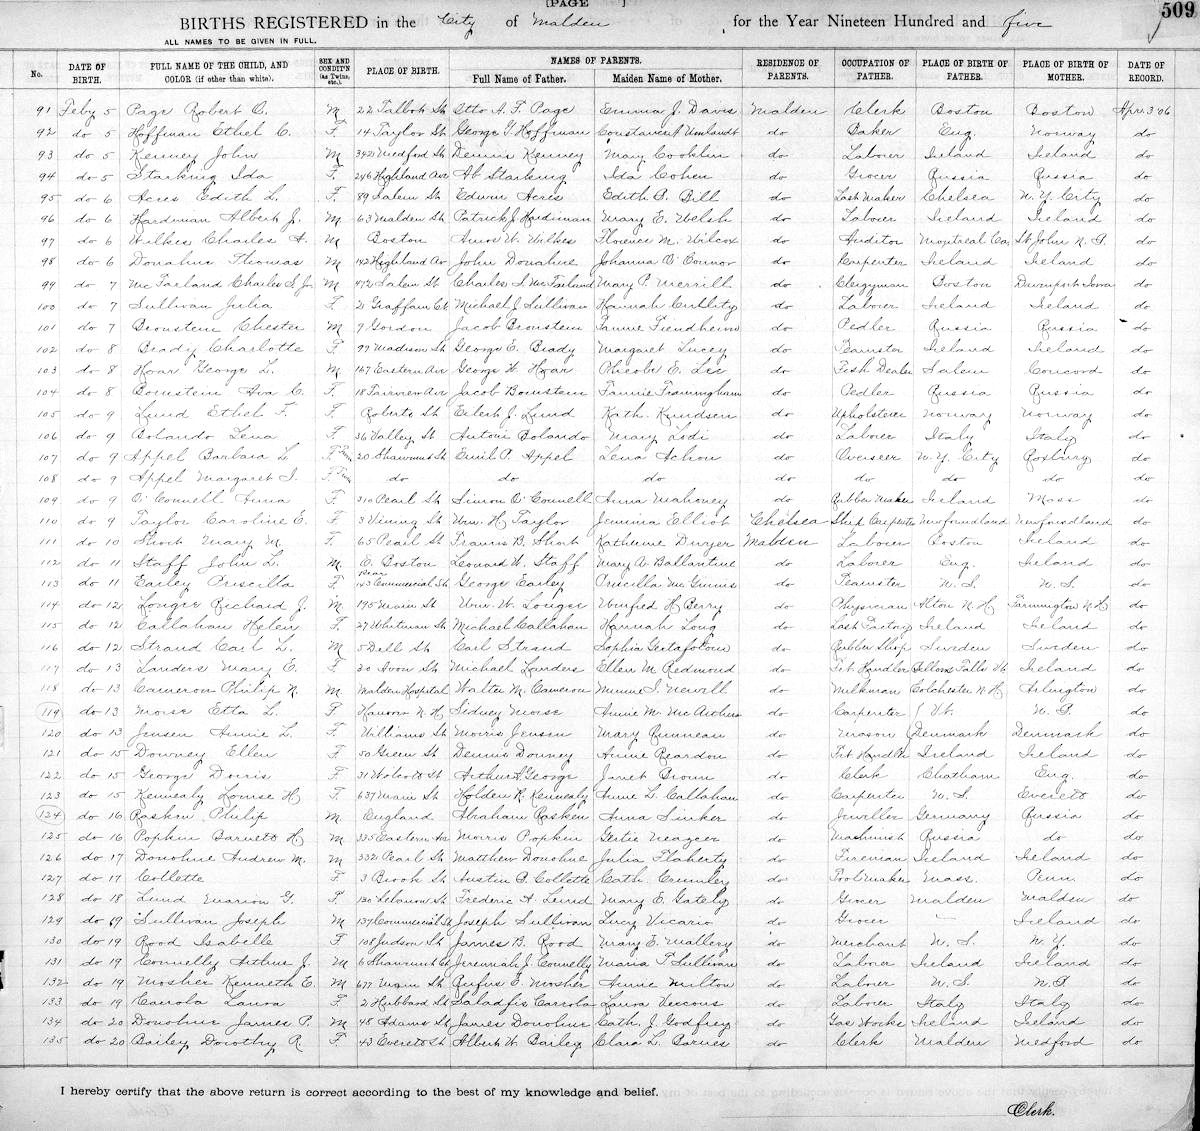 [PAGE ]
509
BIRTHS REGISTERED in the City of Malden for the Year Nineteen Hundred and five
ALL NAMES TO BE GIVEN IN FULL.
No. DATE OF BIRTH. FULL NAME OF THE CHILD, AND COLOR (if other than white). SEX AND CONDIT'N (as Twins, etc.). PLACE OF BIRTH. NAMES OF PARENTS. Full Name of Father. Maiden Name of Mother. RESIDENCE OF PARENTS. OCCUPATION OF FATHER. PLACE OF BIRTH OF FATHER. PLACE OF BIRTH OF MOTHER. DATE OF RECORD.
91 Feby 5 Page Robert O. M 22 Talbot St Otto A. F. Page Emma J. Davis Malden Clerk Boston Boston Apr. 3 '06
92 do 5 Hoffman Ethel C. F. 14 Taylor St George G. Hoffman do Baker Eng. Norway do
93 do 5 Kenney John M 342 Medford St Dennis Kenney Mary Cooklin do Laborer Ireland Ireland do
94 do 5 Starking Ida F. 246 Highland Ave Ab Starking Ida Cohen do Grocer Russia Russia do
95 do 6 Acres Edith L. F. 89 Salem St Edwin Acres Edith B. Bill do Last Maker Chelsea N. Y. City do
96 do 6 Hardiman Albert J. M 63 Malden St Patrick J. Hardiman Mary E. Welsh do Laborer Ireland Ireland do
97 do 6 Wilkes Charles A. M Boston W. Wilkes Florence M. Wilcox do Auditor Montreal Ca. St John N. B. do
98 do 6 Donahue Thomas M 142 Highland Av John Donahue Johanna O'Connor do Carpenter Ireland Ireland do
99 do 7 McFarland Charles S. Jr M 492 Salem St Charles S. McFarland Mary P. Merrill do Clergyman Boston Davenport Iowa do
100 do 7 Sullivan Julia F. 21 Graffam Ct Michael J. Sullivan Hannah do Laborer Ireland Ireland do
101 do 7 Bronstein Chester M 9 Gordon Jacob Bronstein Fannie do Pedler Russia Russia do
102 do 8 Brady Charlotte F. 99 Madison St George E. Brady Margaret Lucey do Teamster Ireland Ireland do
103 do 8 Hoar George L. M 167 Eastern Av George H. Hoar Phoebe E. Lee do Fish Dealer Salem Concord do
104 do 8 Bornstein Ava C. F. 18 Fairview Ave Jacob Bornstein Fannie Framingham do Pedler Russia Russia do
105 do 9 Lund Ethel F. F. Roberts St Eilert J. Lund Kath. Knudsen do Upholsterer Norway Norway do
106 do 9 Bolando Lena F. 36 Valley St Antoni Bolando Mary Lodi do Laborer Italy Italy do
107 do 9 Appel Barbara L F Twin 20 Shawmut St Emil P. Appel Lena Achon do Overseer N. Y. City Roxbury do
108 do 9 Appel Margaret I. F Twin do do do do do do do do
109 do 9 O'Connell Anna F. 310 Pearl St Simon O'Connell Anna Mahoney do Rubber Maker Ireland Mass do
110 do 9 Taylor Caroline E. F. 3 Vining St Wm. H. Taylor Jemima Elliot Chelsea Ship Carpenter Newfoundland Newfoundland do
111 do 10 Short Mary M. F. 65 Pearl St Francis B. Short Katherine Dwyer Malden Laborer Boston Ireland do
112 do 11 Staff John L. M E. Boston Leonard W. Staff Mary A. Ballantine do Laborer Eng. Ireland do
113 do 11 Earley Priscilla F. Rear 153 Commercial St George Earley Priscilla McGinnis do Teamster N. S. N. S. do
114 do 12 Longer Richard J. M 195 Main St Wm. W. Longer Winifred H. Berry do Physician Alton N. H. Farmington N. H. do
115 do 12 Callahan Helen F. 27 Whitman St Michael Callahan Hannah Long do Last Factory Ireland Ireland do
116 do 12 Strand Carl L. M 5 Dell St Carl Strand Sophia do Rubber Shop Sweden Sweden do
117 do 13 Landers Mary C. F. 30 Avon St Michael Landers Ellen M. Redmond do Frt Handler Bellows Falls Vt. Ireland do
118 do 13 Cameron Philip N. M Malden Hospital Walter M. Cameron Minnie I. Newill do Milkman Colchester N. H. Arlington do
119 do 13 Morse Etta L. F. N. H Sidney Morse Annie M. McArthur do Carpenter Vt. N. B. do
120 do 13 Jensen Annie L. F. Williams St Morris Jensen Mary Runneau do Mason Denmark Denmark do
121 do 15 Downey Ellen F. 50 Green St Dennis Downey Annie Reardon do Frt Handler Ireland Ireland do
122 do 15 George Doris F. 31 Wolcott St Arthur S. George Janet Brown do Clerk Chatham Eng. do
123 do 15 Kennealy Louise H F. 637 Main St Holden R. Kennealy Annie L. Callahan do Carpenter N. S Everett do
124 do 16 Raskin Philip M England Abraham Raskin Anna Sinker do Jeweller Germany Russia do
125 do 16 Popkin Barnett H M 335 Eastern Av Morris Popkin Gertie do Machinist Russia do do
126 do 17 Donohue Andrew M. M 332 Pearl St Matthew Donohue Julia Flaherty do Fireman Ireland Ireland do
127 do 17 Collette F 3 Brook St Austin B. Collette Cath. Crumley do Toolmaker Mass. Penn. do
128 do 18 Lund Marion G. F. 130 Lebanon St Frederic A. Lund Mary E. Gately do Malden Malden do
129 do 19 Sullivan Joseph M 137 Commercial St Joseph Sullivan Lucy Vicario do Grocer — Ireland do
130 do 19 Rood Isabelle F 108 Judson St James B. Rood Mary E. Mallery do Merchant N. S. N. Y. do
131 do 19 Connelly Arthur J. M 6 Shawmut Jeremiah J. Connelly Maria T. Sullivan do Laborer Ireland Ireland do
132 do 19 Mosher Kenneth E. M 677 Main St Rufus E. Mosher Annie Milton do Laborer N. S. N. B do
133 do 19 Carrola Laura F 21 Hubbard St Carrola Laura do Laborer Italy Italy do
134 do 20 Donohue James P. M 48 Adams St James Donohue Cath. J. Godfrey do Gas Works Ireland Ireland do
135 do 20 Bailey Dorothy R. F. 43 Everett St Albert W. Bailey Clara L. Barnes do Clerk Malden Medford do
I hereby certify that the above return is correct according to the best of my knowledge and belief.
Clerk.